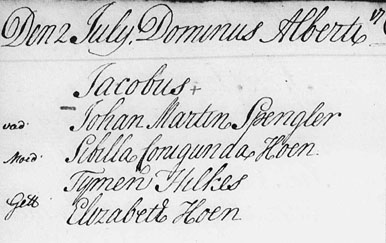 Den 2 July. Dominus Alberti
Jacobus +
vad. Johan Martin Spengler
Moed. Sibilla Conigunda Hoen.
Tymen Hilkes
Gett Elizabeth Hoen